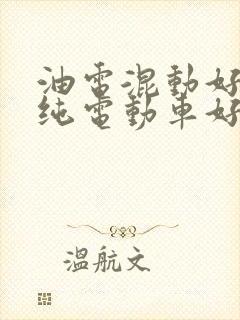 油電混動好
純電動車好
溫航文